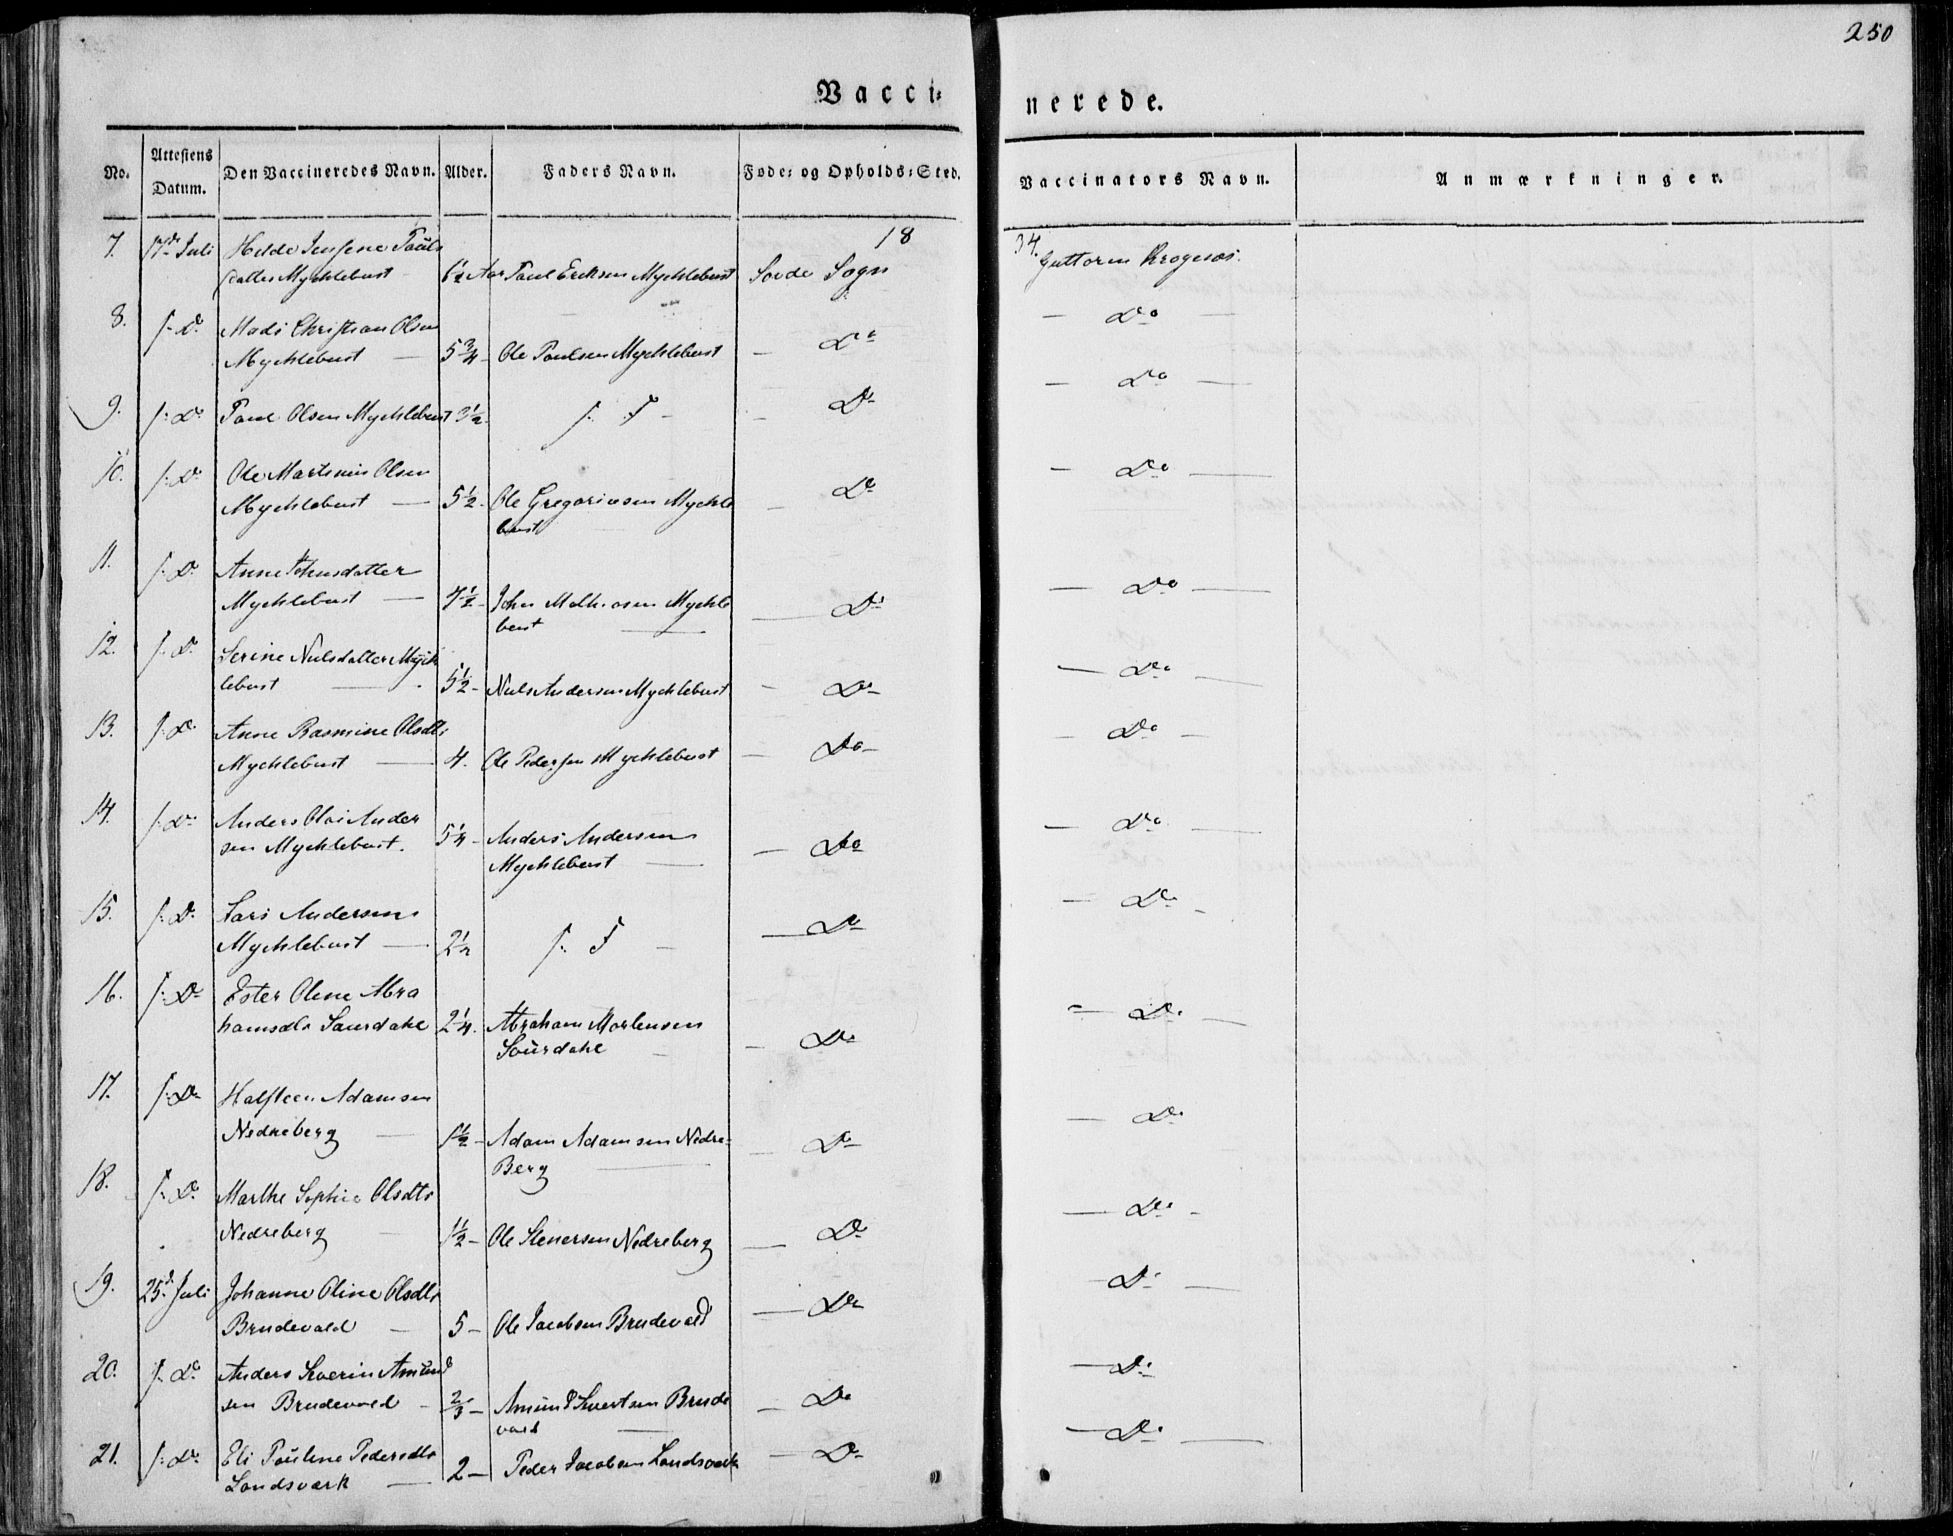 250
Vacci-
nerede.
No. Attestens Datum. Den Vaccineredes Navn. Alder. Faders Navn. Føde- og Opholds-Sted. Vaccinators Navn. Anmærkninger.
1834.
7. 17de Juli Pauls
datter Mychlebust 6½ Aar Paul Eriksen Mychlebust Sogn Guttorm
8. f: Do Mads Christian Olsen
Mychlebust — 5¾ – Ole Paulsen Mychlebust — Do — Do —
9. f: Do Paul Olsen Mychlebust 3½ f: F – — Do — Do —
10. f: Do Ole Martinus Olsen
Mychlebust — 5½ – Ole Gregoriusen Mychle
bust — Do — Do —
11. f: Do Anne Johnsdatter
Mychlebust — 7½ – John Mychle
bust — Do — Do —
12. f: Do Serine Nielsdatter Mych
lebust — 5½ – Niels Andersen Mychlebust — Do — Do —
13. f: Do Anne Rasmine Olsdtr
Mychlebust — 4. Ole Pedersen Mychlebust — Do – — Do —
14. f: Do Anders Olai Ander
sen Mychlebust. 5¼ – Anders Andersen
Mychlebust — — Do — Do —
15. f: Do Lars Andersen
Mychlebust — 2½ f: F – — Do — Do –
16. f: Do Ester Oline Abra
hamsdtr Saurdahl 2¼. Abraham Mortensen
Saurdahl — Do — Do —
17. f: Do Halsteen Adamsen
Nedreberg — 1½ – Adam Adamsen Nedre-
Berg — — Do — Do
18. f: Do Marthe Sophie Olsdtr
Nedreberg — 1½ – Ole Stenersen Nedreberg — Do — Do –
19. 25d Juli Johanne Oline Olsdtr
Brudevold — 5 – Ole Jacobsen Brudevold — Do — Do —
20. f: Do Anders Severin Amund
sen Brudevold – ⅔ – Amund Sivertsen Brude
vold — — Do — Do
21. f: Do Eli Pauline Pedersdtr
Landsværk — 2 – Peder Jacobsen Landsværk — Do — Do —